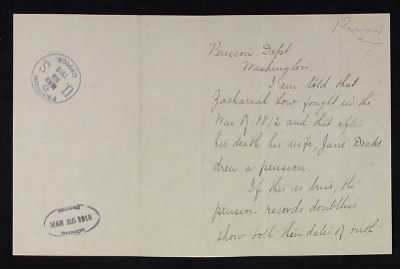 Pension Dept.
Washington.
I am told that
Zachariah Low fought in the
War of 1812 and that after
his death his wife, Jane Drake
drew a pension.
If this is true, the
pension records doubtless
show both their dates of birth
MAR 25 1918
DIVISION